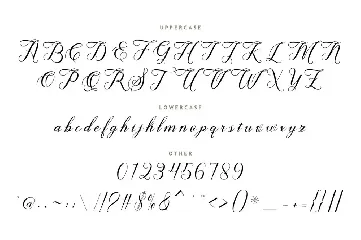 UPPERCASE
A B C D E F G H I J K L M N
O P Q R S T U V W X Y Z
LOWERCASE
a b c d e f g h i j k l m n o p q r s t u v w x y z
OTHER
0 1 2 3 4 5 6 7 8 9